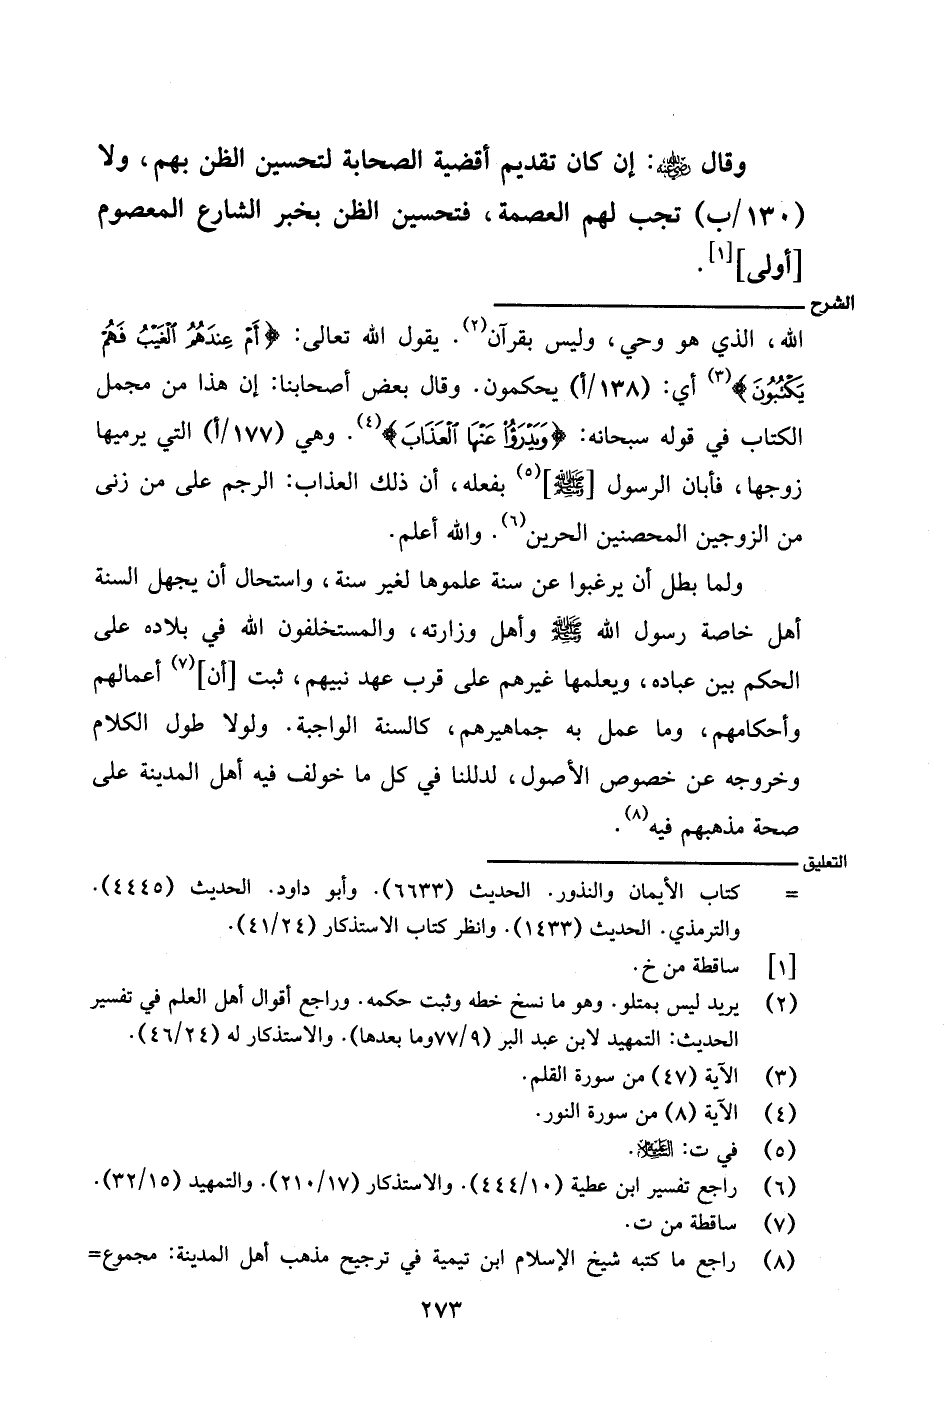 وقال رضي الله عنه: إن كان تقديم أقضية الصحابة لتحسين الظن بهم، ولا
(١٣٠/ب) تجب لهم العصمة، فتحسين الظن بخبر الشارع المعصوم
[أولى][١].
الشرح
الله، الذي هو وحي، وليس بقرآن(٢). يقول الله تعالى: ﴿أَمْ عِندَهُمُ ٱلْغَيْبُ فَهُمْ
يَكْتُبُونَ﴾(٣) أي: (١٣٨/أ) يحكمون. وقال بعض أصحابنا: إن هذا من مجمل
الكتاب في قوله سبحانه: ﴿وَيَدْرَؤُا۟ عَنْهَا ٱلْعَذَابَ﴾(٤). وهي (١٧٧/أ) التي يرميها
زوجها، فأبان الرسول [ﷺ](٥) بفعله، أن ذلك العذاب: الرجم على من زنى
من الزوجين المحصنين الحرين(٦). والله أعلم.
ولما بطل أن يرغبوا عن سنة علموها لغير سنة، واستحال أن يجهل السنة
أهل خاصة رسول الله ﷺ وأهل وزارته، والمستخلفون الله في بلاده على
الحكم بين عباده، ويعلمها غيرهم على قرب عهد نبيهم، ثبت [أن](٧) أعمالهم
وأحكامهم، وما عمل به جماهيرهم، كالسنة الواجبة. ولولا طول الكلام
وخروجه عن خصوص الأصول، لدللنا في كل ما خولف فيه أهل المدينة على
صحة مذهبهم فيه(٨).
التعليق
= كتاب الأيمان والنذور. الحديث (٦٦٣٣). وأبو داود. الحديث (٤٤٤٥).
والترمذي. الحديث (١٤٣٣). وانظر كتاب الاستذكار (٤١/٢٤).
[١] ساقطة من خ.
(٢) يريد ليس بمتلو. وهو ما نسخ خطه وثبت حكمه. وراجع أقوال أهل العلم في تفسير
الحديث: التمهيد لابن عبد البر (٧٧/٩وما بعدها). والاستذكار له (٤٦/٢٤).
(٣) الآية (٤٧) من سورة القلم.
(٤) الآية (٨) من سورة النور.
(٥) في ت: عليه السلام.
(٦) راجع تفسير ابن عطية (٤٤٤/١٠). والاستذكار (٢١٠/١٧). والتمهيد (٣٢/١٥).
(٧) ساقطة من ت.
(٨) راجع ما كتبه شيخ الإسلام ابن تيمية في ترجيح مذهب أهل المدينة: مجموع=
٢٧٣